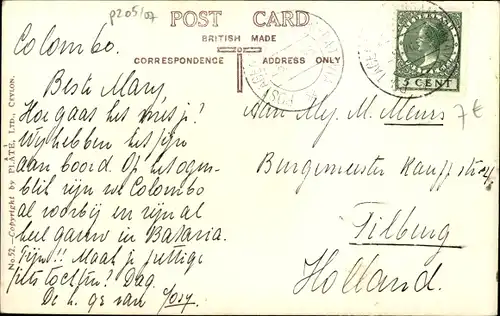 p205/07
POST CARD
BRITISH MADE
CORRESPONDENCE
ADDRESS ONLY
NEDERLAND
5 CENT
7€
No. 52.—Copyright by PLÂTÉ, LTD., CEYLON.
Colombo.
Beste Mary
Hoe gaat het met je?
Wij hebben het fijn
aan boord. Op het ogen-
blik zijn we Colombo
al voorbij en zijn al
heel gauw in Batavia.
Fijn!! Maak je prettige
fiets tochten? Dag
De h. gr van Josy.
Aan Mej. M. Meurs
Burgemeister Kauffstr
Tilburg
Holland.